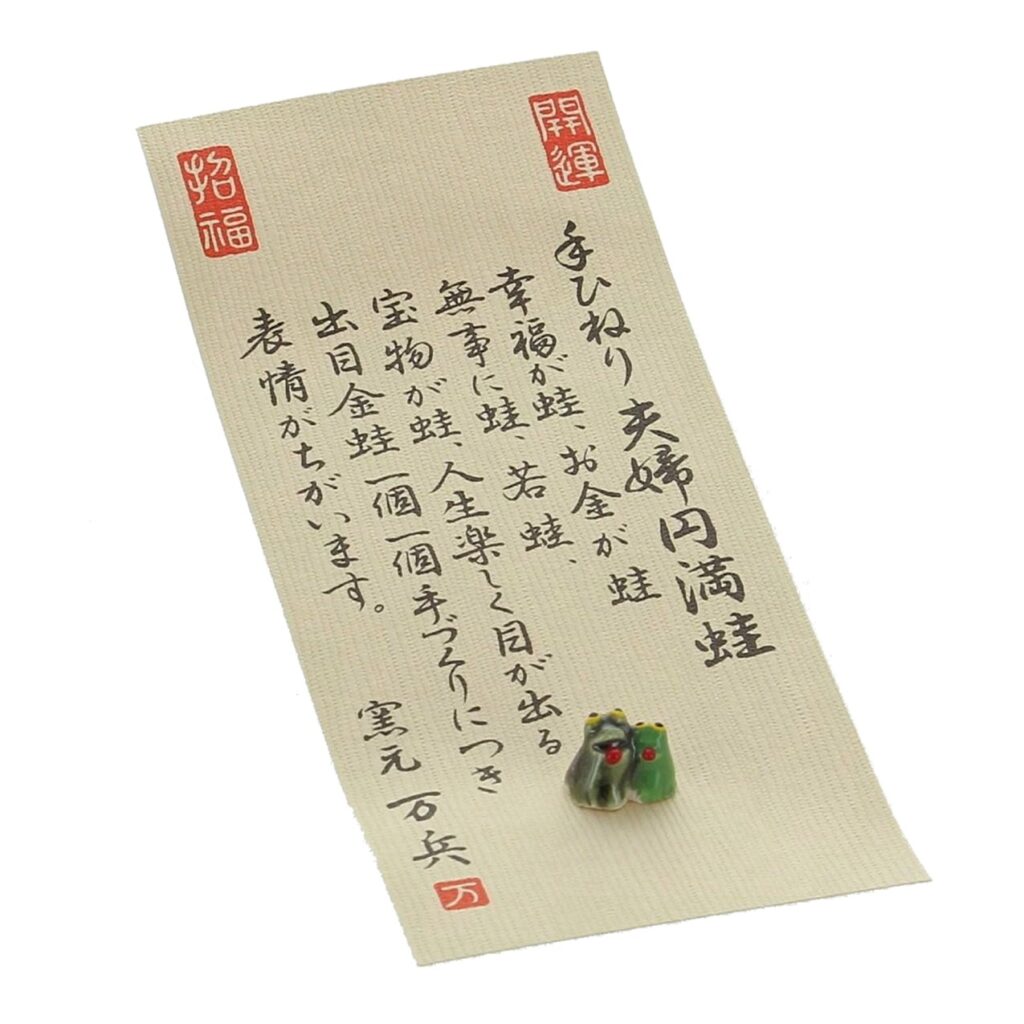 開運
手ひねり 夫婦円満蛙
幸福が蛙、お金が蛙
無事に蛙、若蛙、
宝物が蛙、人生楽しく目が出る
出目金蛙一個一個手づくりにつき
表情がちがいます。
窯元 万兵
万
招福